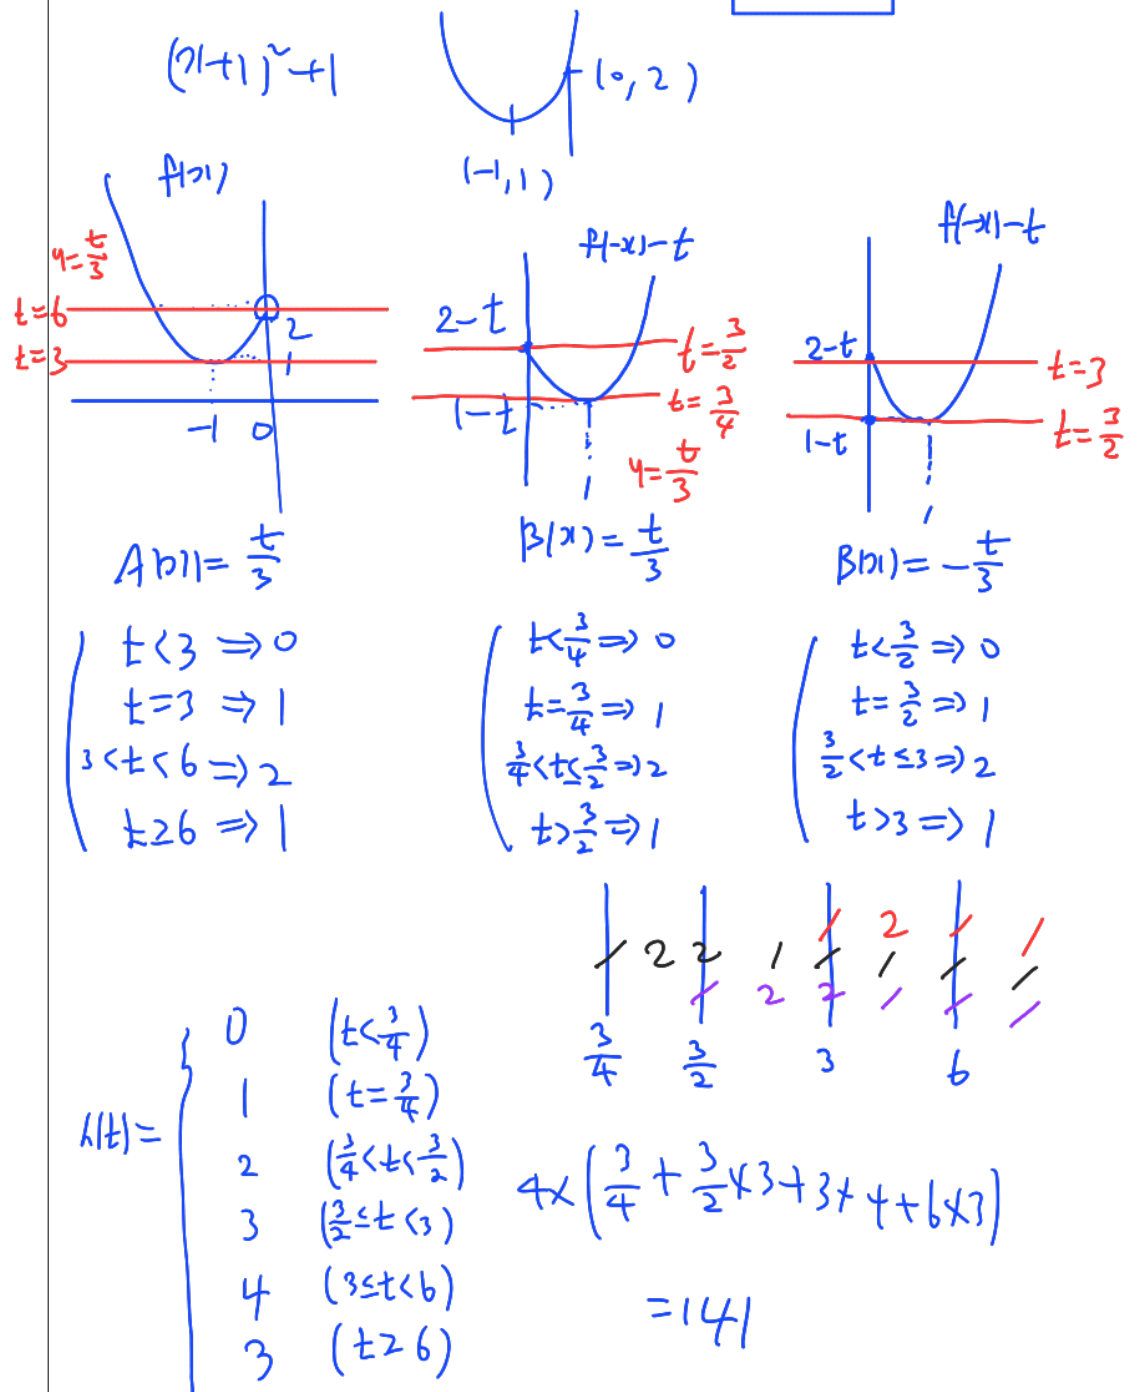 (x+1)²+1
(0, 2)
(-1, 1)
f(x)
y=t/3
t=6
t=3
2
1
-1 0
f(-x)-t
2-t
1-t
t=3/2
t=3/4
y=t/3
1
f(-x)-t
2-t
1-t
t=3
t=3/2
1
A(x)=t/3
t<3 ⇒ 0
t=3 ⇒ 1
3<t<6 ⇒ 2
t≥6 ⇒ 1
B(x)=t/3
t<3/4 ⇒ 0
t=3/4 ⇒ 1
3/4<t≤3/2 ⇒ 2
t>3/2 ⇒ 1
B(x)=-t/3
t<3/2 ⇒ 0
t=3/2 ⇒ 1
3/2<t≤3 ⇒ 2
t>3 ⇒ 1
1 2 1 1
1 2 2 1 1 1 1 1
1 2 2 1 1 1
3/4 3/2 3 6
h(t)=
0 (t<3/4)
1 (t=3/4)
2 (3/4<t<3/2)
3 (3/2≤t<3)
4 (3≤t<6)
3 (t≥6)
4×(3/4+3/2×3+3×4+6×3)
=141